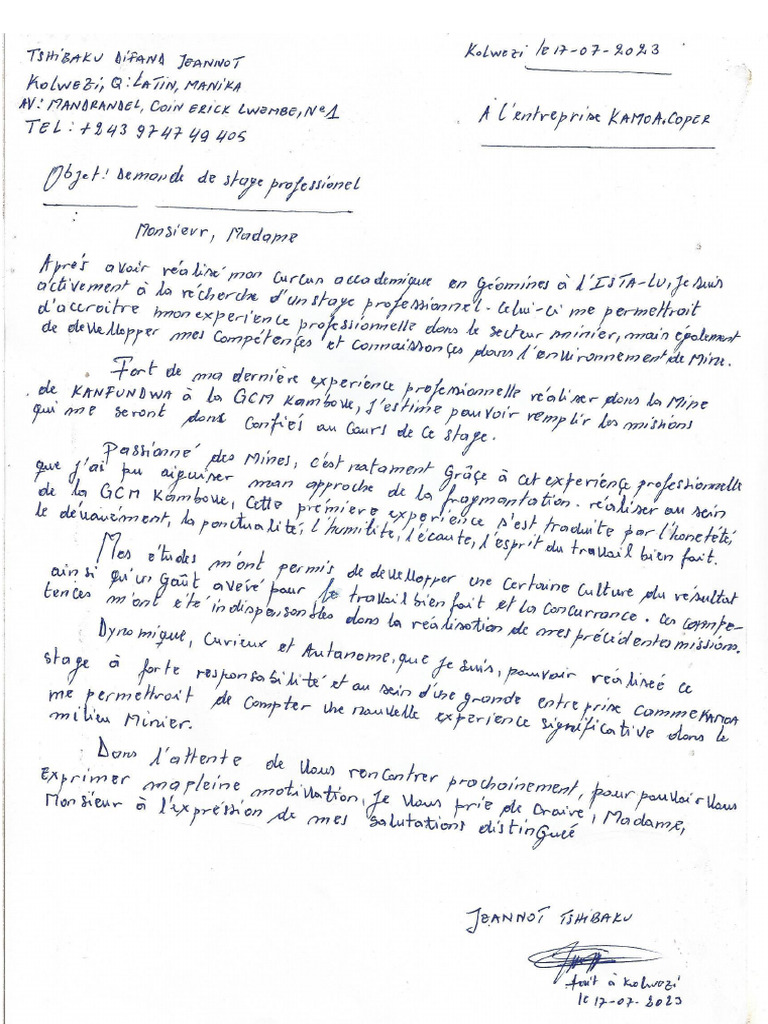 TSHIBAKU DIFAND JEANNOT
Kolwezi, Q: LATIN, MANIKA
AV: MANDRANDEL, COIN ERICK LWEMBE, N°1
TEL: +243 97 47 49 405
Kolwezi le 17-07-2023
À l'entreprise KAMOA.COPER
Objet: Demande de stage professionel
Monsieur, Madame
Après avoir réalisé mon curcun accademique en Géomines à l'ISTA-LU, Je suis
activement à la récherche d'un stage professionnel. Celui-ci me permettrait
d'accroitre mon experience professionnelle dans le secteur minier, main également
de devellopper mes compétences et connaissonçes dans l'environnement de Mine.
Fort de ma dernière experience professionnelle réaliser dans la Mine
de KANFUNDWA à la GCM Kambove, J'estime pouvoir remplir les missions
qui me seront dans confiés au cours de ce stage.
Passionné des Mines, c'est natament Grâce à cet experiençe professionnelle
que j'ai pu aiguiser man approche de la fragmantation. réaliser au sein
de la GCM Kambove, Cette première experience s'est traduite par l'honetété,
le dévauément, la ponctualité, l'humilité, l'écaute, l'esprit du travail bien fait.
Mes études m'ont permis de devellopper une certaine culture du résultat
ainsi qu'un Gaût avéré pour le travail bien fait et la concurrance. ces compe-
tences m'ont été indispensables dans la réalisation de mes précédentes missions.
Dynamique, Curieux et Autanome, que Je suis, pouvoir réaliseé ce
stage à forte responsabilité et au sein d'une grande entreprise comme KAMOA
me permettrait de compter une nouvelle experience significative dans le
milieu Minier.
Dans l'attente de vous rencontrer prochainement, pour pouvoir vous
Exprimer ma pleine motivation, Je vous prie de Craire, Madame,
Monsieur à l'expréssion de mes salutations distinguéé
JEANNOT TSHIBAKU
fait à Kolwezi
le 17-07-2023